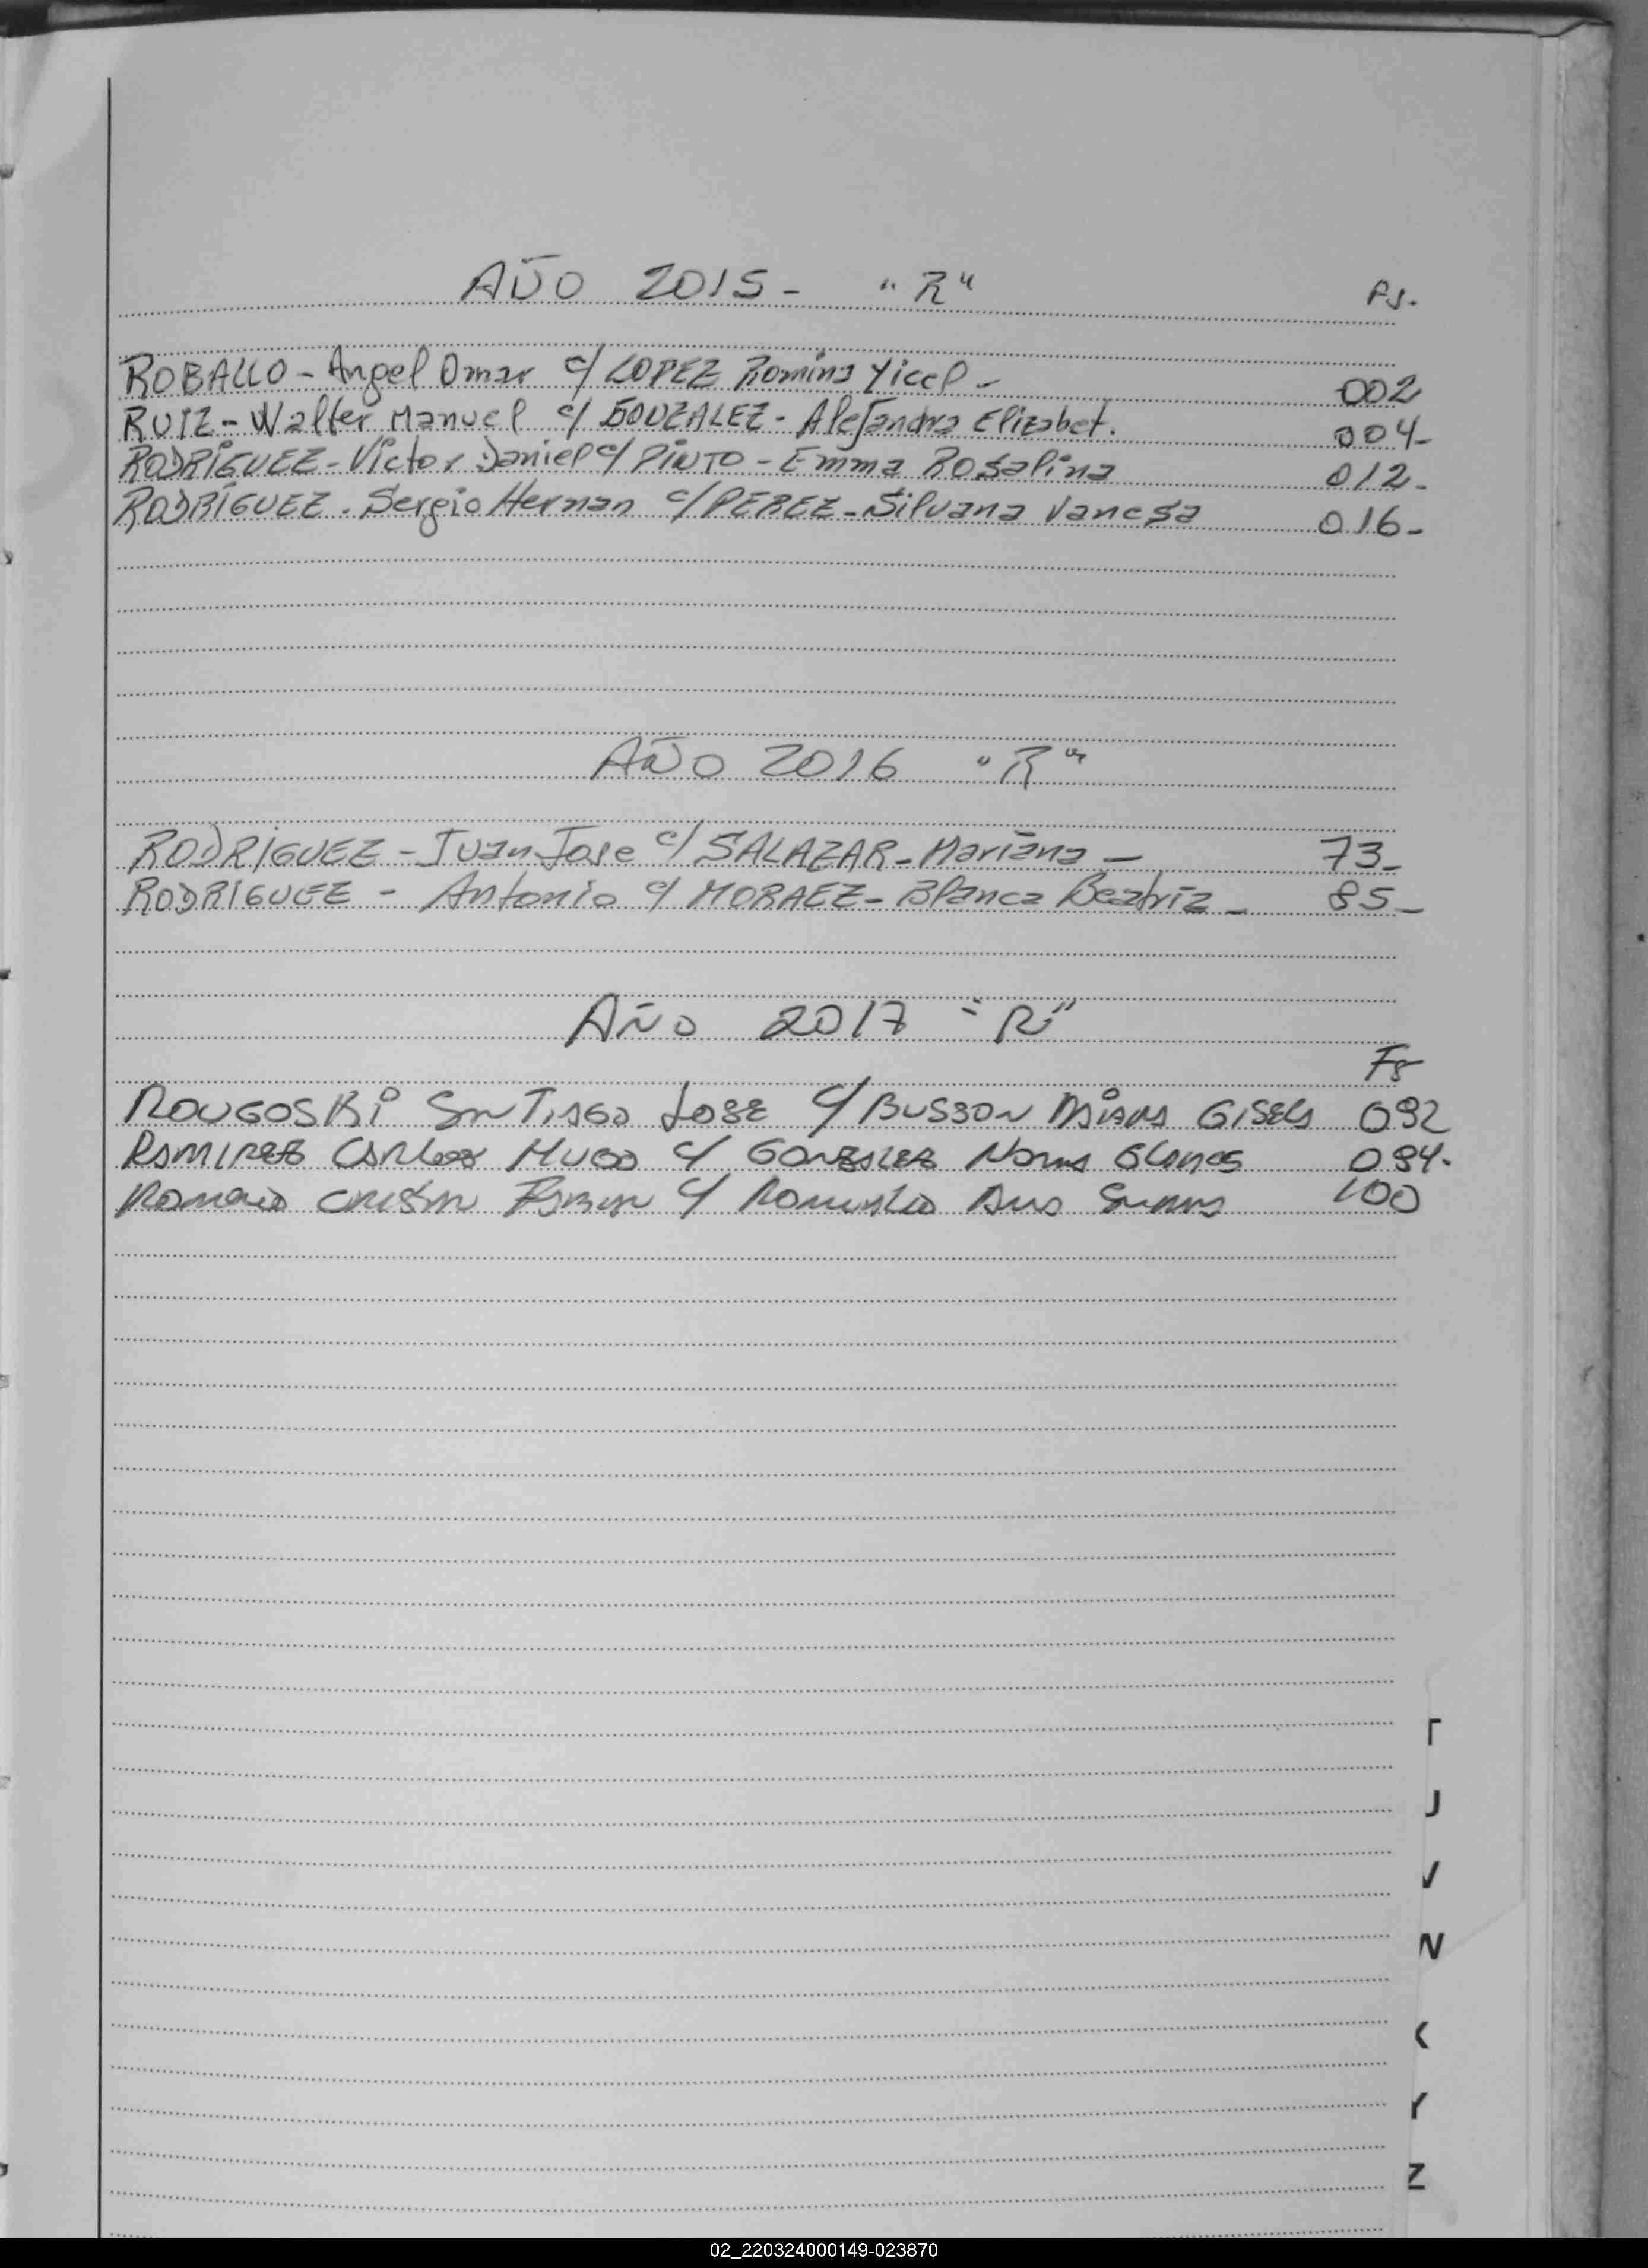 AÑO 2015 - "R" Fs.
ROBALLO - Angel Omar c/ LOPEZ Romina Yicel - 002
RUIZ - Walter Manuel c/ GONZALEZ - Alejandra Elizabet. 004-
RODRÍGUEZ - Victor Daniel c/ PINTO - Emma Rosalina 012-
RODRÍGUEZ - Sergio Hernan c/ PEREZ - Silvana Vanesa 016-
AÑO 2016 "R"
RODRIGUEZ - Juan Jose c/ SALAZAR - Mariana - 73-
RODRIGUEZ - Antonio c/ MORAEZ - Blanca Beatriz - 85-
Año 2017 "R"
Fs
ROUGOSKI Santiago Jose c/ BUSSON Gisela 092
Ramirez Carlos Hugo c/ Gonzalez Norma 094.
Romero Cristian Fabian c/ 100
T
U
V
W
X
Y
Z
02_220324000149-023870